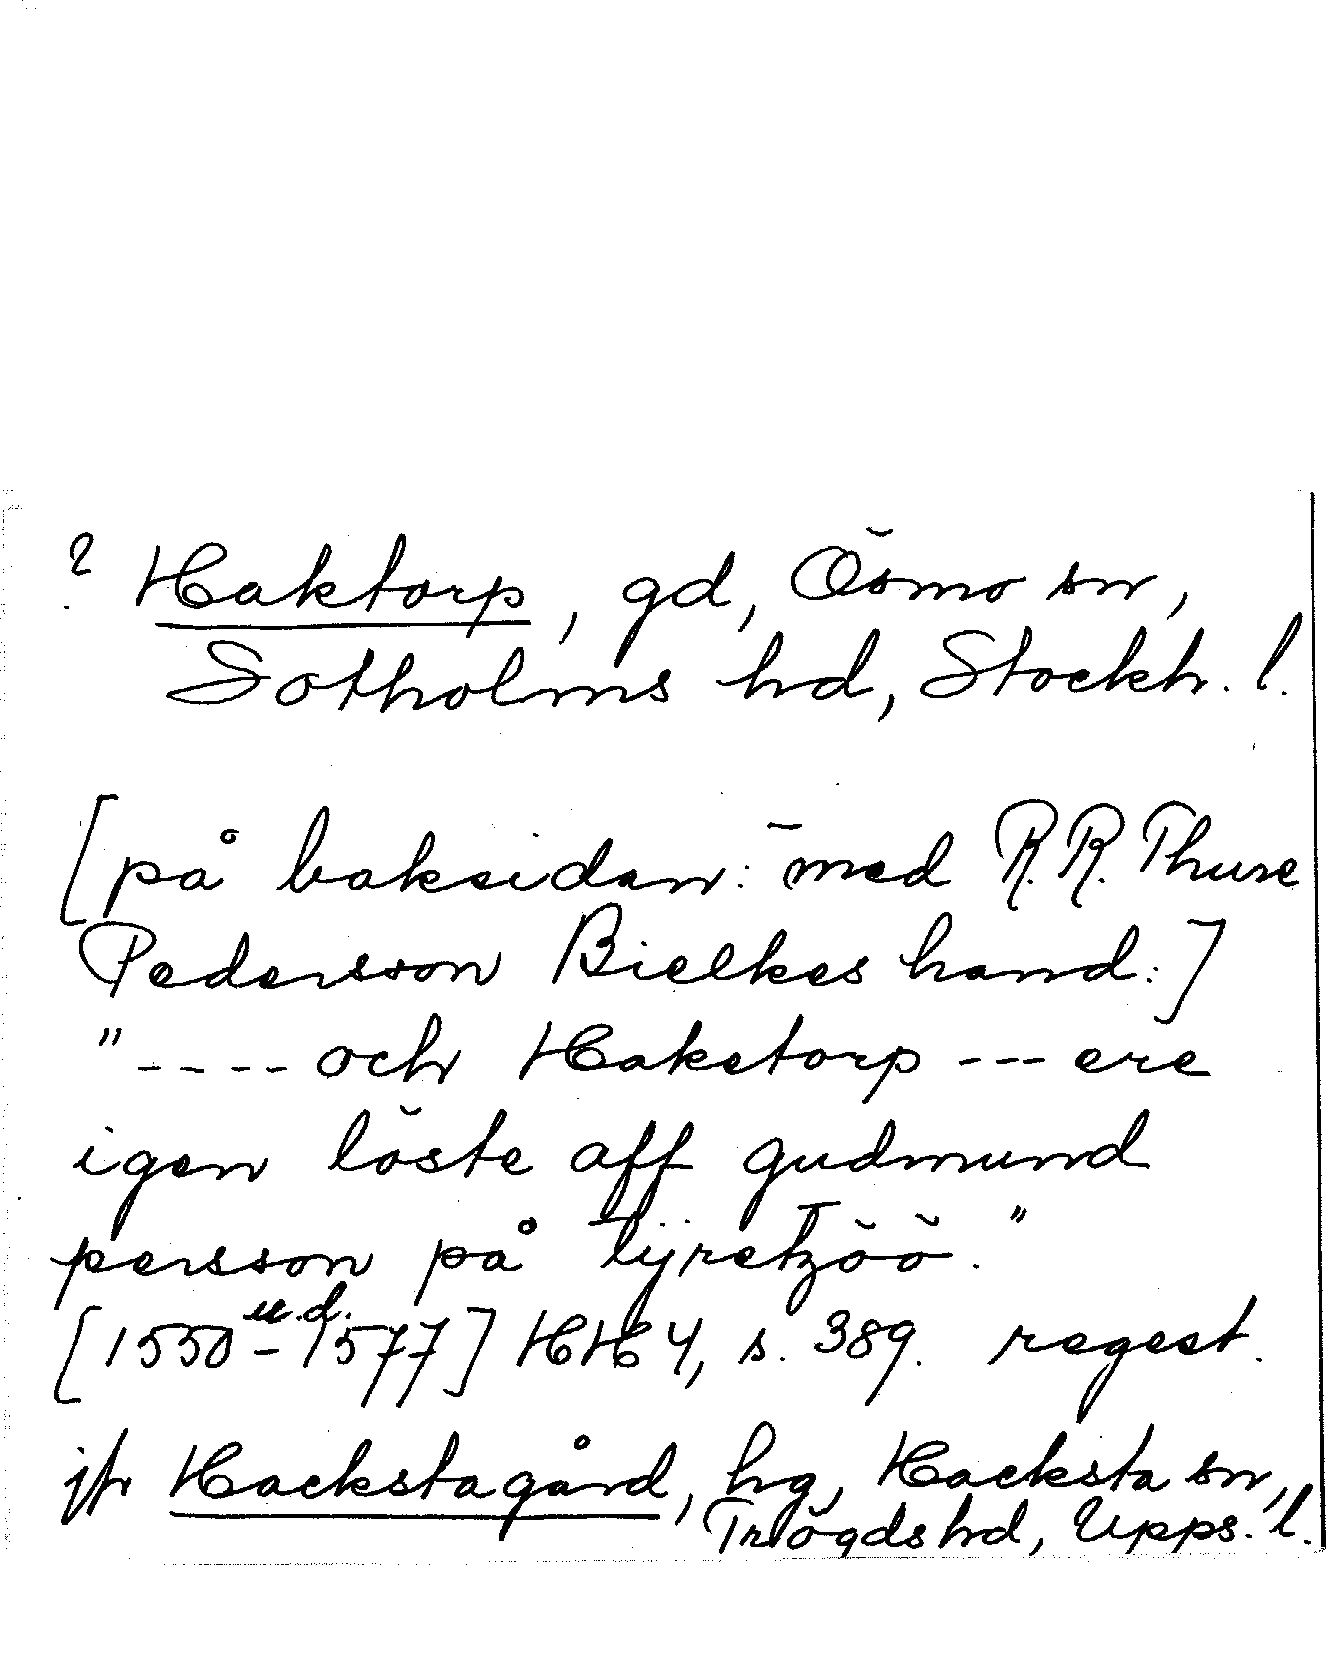 ? Haktorp, gd, Ösmo sn,
Sotholms hd, Stockh. l.
[på baksidan: med R.R. Thure
Pedersson Bielkes hand:]
"---- och Haketorp --- ere
igen löste aff gudmund
persson på Tÿretzöö."
[1550 - 1577] u.d. HH 4, s. 389. regest.
jfr Hackstagård, hg, Hacksta sn,
Trögds hd, Upps. l.